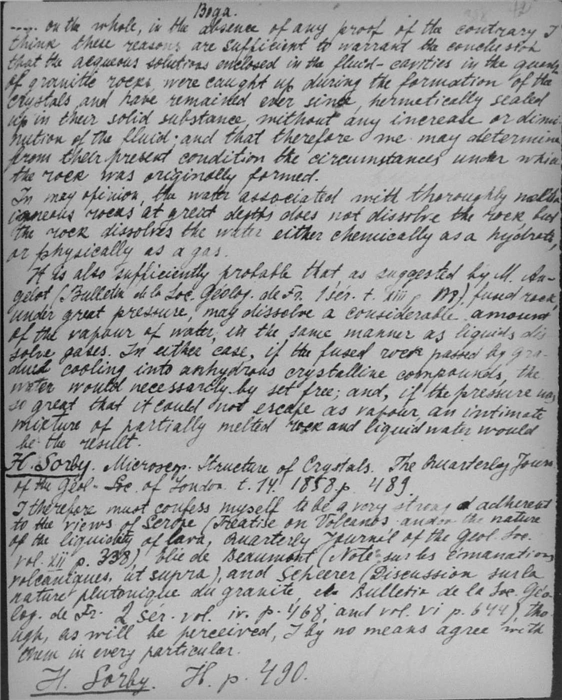 Вода.
..... on the whole, in the absence of any proof of the contrary I
think these reasons are sufficient to warrant the conclusion
that the aqueous solutions enclosed in the fluid-cavities in the quartz
of granitic rocks were caught up during the formation of the
crystals, and have remained ever since, hermetically sealed
up in their solid substance, without any increase or dimi-
nution of the fluid; and that therefore we may determine
from their present condition the circumstances under which
the rock was originally formed.
In my opinion, the water associated with thoroughly melted
igneous rocks at great depths does not dissolve the rock but
the rock dissolves the water either chemically as a hydrate,
or physically as a gas.
It is also sufficiently probable that as suggested by M. An-
gelot (Bulletin de la Soc. Géolog. de Fr. 1 sér. t. XIII p.), fused rock,
under great pressure, may dissolve a considerable amount
of the vapour of water, in the same manner as liquids dis
solve gases. In either case, if the fused rock passed by gra-
dual cooling into anhydrous crystalline compounds, the
water would necessarily by set free; and, if the pressure was
so great that it could not escape as vapour, an intimate
mixture of partially melted rock and liquid water would
be the result.
H. Sorby. Microscop. Structure of Crystals. The Quarterley Journ.
of the Geol. Soc. of London. t. 14. 1858. p. 489.
I therefore must confess myself to be a very strong adherent
to the views of Scrope (Treatise on Volcanos and on the nature
of the liquidity of lava, Quarterly Journal of the Geol. Soc.
vol. XII p. 338), Elie de Beaumont (Note sur les émanations
volcaniques, ut supra), and Scheerer (Discussion sur la
nature plutonique du granite, Bulletin de la Soc. Géo-
log. de Fr. 2 Sér. vol. iv. p. 468, and vol. vi p. 644), tho
ugh, as will be perceived, I by no means agree with
them in every particular.
H. Sorby. H. p. 490.